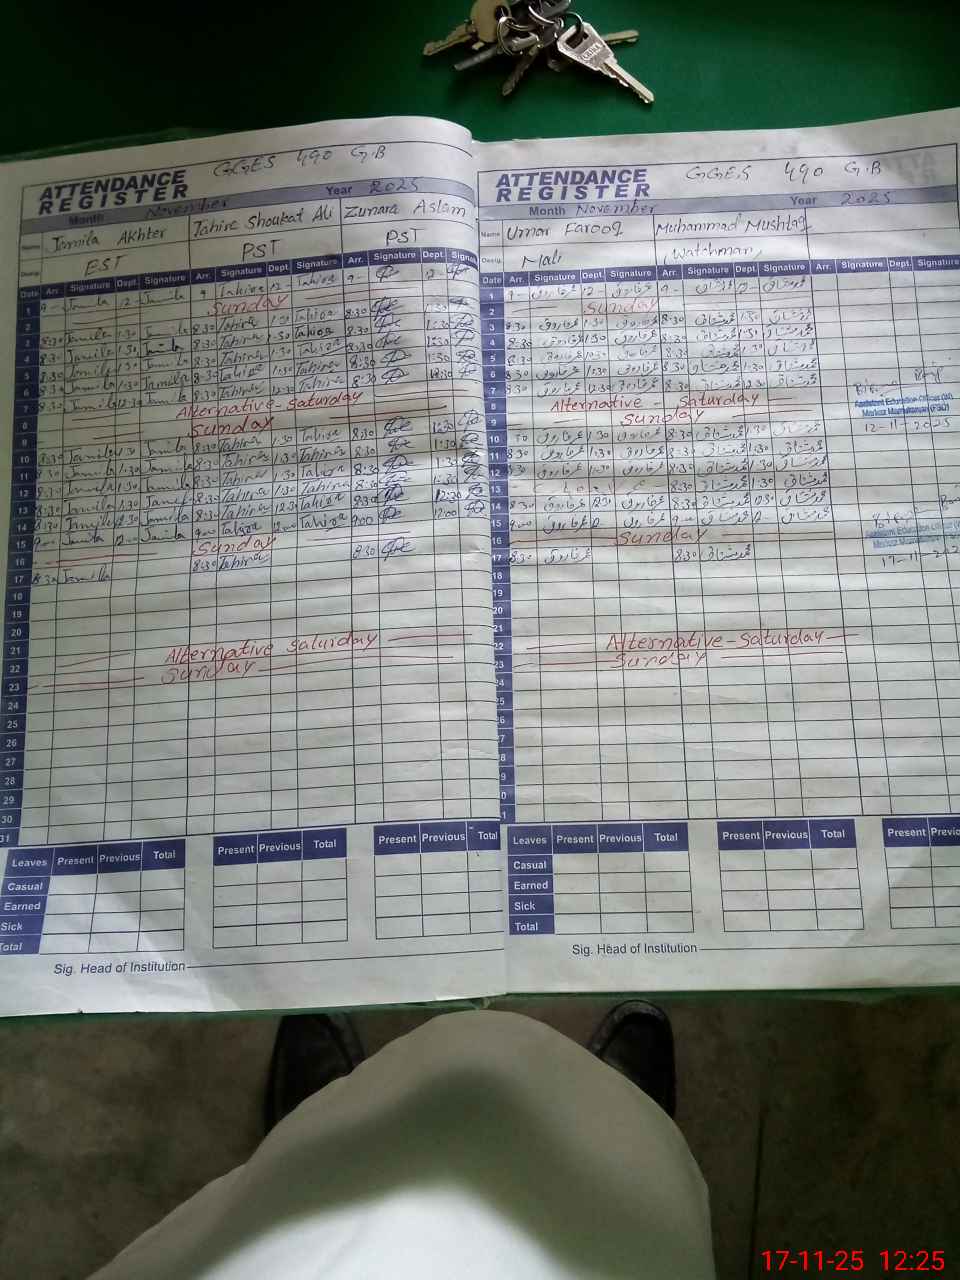 GGES 490 G.B
ATTENDANCE
REGISTER
Year 2025
Month November
Name Jamila Akhter Tahira Shoukat Ali Zunara Aslam
Desig. EST PST PST
Date Arr. Signature Dept. Signature Arr. Signature Dept. Signature Arr. Signature Dept. Signature
1 9 Jamila 12 Jamila 9 Tahira 12 Tahira 9 12
2 Sunday
3 8:30 Jamila 1:30 Jamila 8:30 Tahira 1:30 Tahira 8:30 1:30
4 8:30 Jamila 1:30 Jamila 8:30 Tahira 1:30 Tahira 8:30 1:30
5 8:30 Jamila 1:30 Jamila 8:30 Tahira 1:30 Tahira 8:30 1:30
6 8:30 Jamila 1:30 Jamila 8:30 Tahira 1:30 Tahira 8:30 1:30
7 8:30 Jamila 12:30 Jamila 8:30 Tahira 12:30 Tahira 8:30 12:30
8 Alternative - Saturday
9 Sunday
10 8:30 Jamila 1:30 Jamila 8:30 Tahira 1:30 Tahira 8:30 1:30
11 8:30 Jamila 1:30 Jamila 8:30 Tahira 1:30 Tahira 8:30 1:30
12 8:30 Jamila 1:30 Jamila 8:30 Tahira 1:30 Tahira 8:30 1:30
13 8:30 Jamila 1:30 Jamila 8:30 Tahira 1:30 Tahira 8:30 1:30
14 8:30 Jamila 12:30 Jamila 8:30 Tahira 12:30 Tahira 8:30 12:30
15 9:00 Jamila 12:00 Jamila 9:00 Tahira 12:00 Tahira 9:00 12:00
16 Sunday
17 8:30 Jamila 8:30 Tahira 8:30
18
19
20
21
22 Alternative Saturday
23 Sunday
24
25
26
27
28
29
30
31
Leaves Present Previous Total Present Previous Total Present Previous Total
Casual
Earned
Sick
Total
Sig. Head of Institution
GGES 490 G.B
ATTENDANCE
REGISTER
Month November Year 2025
Name Umar Farooq Muhammad Mushtaq
Desig. Mali Watchman
Date Arr. Signature Dept. Signature Arr. Signature Dept. Signature Arr. Signature Dept. Signature
1 9 عمر فاروق 12 عمر فاروق 9 محمد مشتاق محمد مشتاق
2 Sunday
3 8:30 عمر فاروق 1:30 عمر فاروق 8:30 محمد مشتاق 1:30 محمد مشتاق
4 8:30 عمر فاروق 1:30 عمر فاروق 8:30 محمد مشتاق 1:30 محمد مشتاق
5 8:30 عمر فاروق 1:30 عمر فاروق 8:30 محمد مشتاق 1:30 محمد مشتاق
6 8:30 عمر فاروق 1:30 عمر فاروق 8:30 محمد مشتاق 1:30 محمد مشتاق
7 8:30 عمر فاروق 12:30 عمر فاروق 8:30 محمد مشتاق 12:30 محمد مشتاق
8 Alternative - Saturday
Assistant Education Officer (W)
9 Sunday
12-11-2025
10 عمر فاروق 1:30 عمر فاروق 8:30 محمد مشتاق 1:30 محمد مشتاق
11 8:30 عمر فاروق 1:30 عمر فاروق 8:30 محمد مشتاق 1:30 محمد مشتاق
12 8:30 عمر فاروق 1:30 عمر فاروق 8:30 محمد مشتاق 1:30 محمد مشتاق
13 8:30 محمد مشتاق 1:30 محمد مشتاق
14 8:30 عمر فاروق 12:30 عمر فاروق 8:30 محمد مشتاق 12:30 محمد مشتاق
15 9:00 عمر فاروق عمر فاروق 9:00 محمد مشتاق محمد مشتاق
16 Sunday
Assistant Education Officer
17 8:30 عمر فاروق 8:30 محمد مشتاق
17-11-202
18
19
20
21
22 Alternative - Saturday
23 Sunday
24
25
26
Leaves Present Previous Total Present Previous Total Present
Casual
Earned
Sick
Total
Sig. Head of Institution
17-11-25 12:25